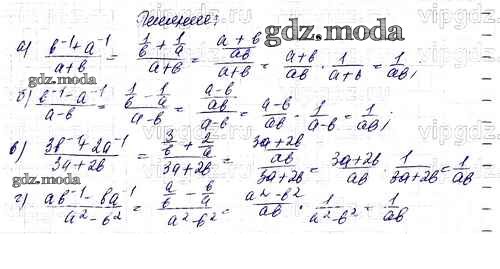 Решение:
gdz.moda
а) (b⁻¹ + a⁻¹)/(a + b) = (1/b + 1/a)/(a + b) = ((a + b)/ab)/(a + b) = (a + b)/ab · 1/(a + b) = 1/ab;
gdz.moda
б) (b⁻¹ - a⁻¹)/(a - b) = (1/b - 1/a)/(a - b) = ((a - b)/ab)/(a - b) = (a - b)/ab · 1/(a - b) = 1/ab;
в) (3b⁻¹ + 2a⁻¹)/(3a + 2b) = (3/b + 2/a)/(3a + 2b) = ((3a + 2b)/ab)/(3a + 2b) = (3a + 2b)/ab · 1/(3a + 2b) = 1/ab
gdz.moda
г) (ab⁻¹ - ba⁻¹)/(a² - b²) = (a/b - b/a)/(a² - b²) = (a² - b²)/ab · 1/(a² - b²) = 1/ab